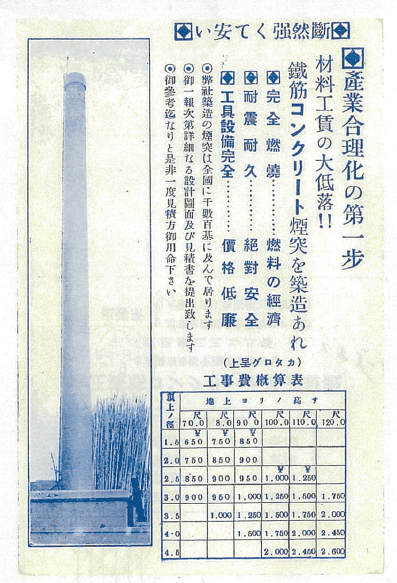 い安てく强然斷
產業合理化の第一步
材料工賃の大低落!!
鐵筋コンクリート煙突を築造あれ
完全燃燒………燃料の經濟
耐震耐久………絕對安全
工具設備完全………價格低廉
弊社築造の煙突は全國に千數百基に及んで居ります
御一報次第詳細なる設計圖面及び見積書を提出致します
御參考迄なりと是非一度見積方御用命下さい
(上呈グロタカ)
工事費槪算表
頂上ノ徑 地上ヨリノ高サ
尺 尺 尺 尺 尺 尺
70.0 8.0 90.0 100.0 110.0 120.0
¥ ¥ ¥
1.5 650 750 850
2.0 750 850 900
¥ ¥
2.5 850 900 950 1.000 1.250
3.0 900 950 1.000 1.250 1.500 1.750
3.5 1.000 1.250 1.500 1.750 2.000
4.0 1.500 1.750 2.000 2.450
4.5 2.000 2.450 2.600